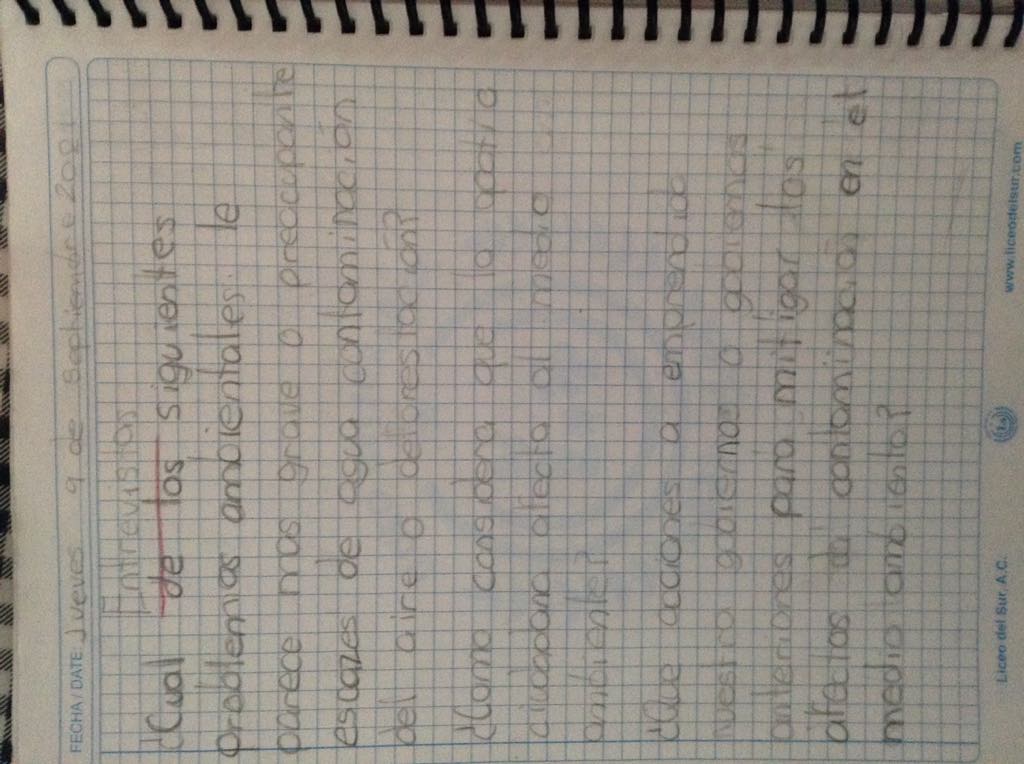 FECHA / DATE Jueves 9 de septiembre 2021
Entrevistas
¿Cual de los siguientes
problemas ambientales le
parece mas grave o preocupante
escazes de agua contaminación
del aire o deforestación?
¿Como considera que la apatia
ciudadana afecta al medio
ambiente?
¿Que acciones a emprendido
nuestro gobierno o gobiernos
anteriores para mitigar los
afectos de contaminación en el
medio ambiento?
Liceo del Sur, A.C.
www.liceodelsur.com